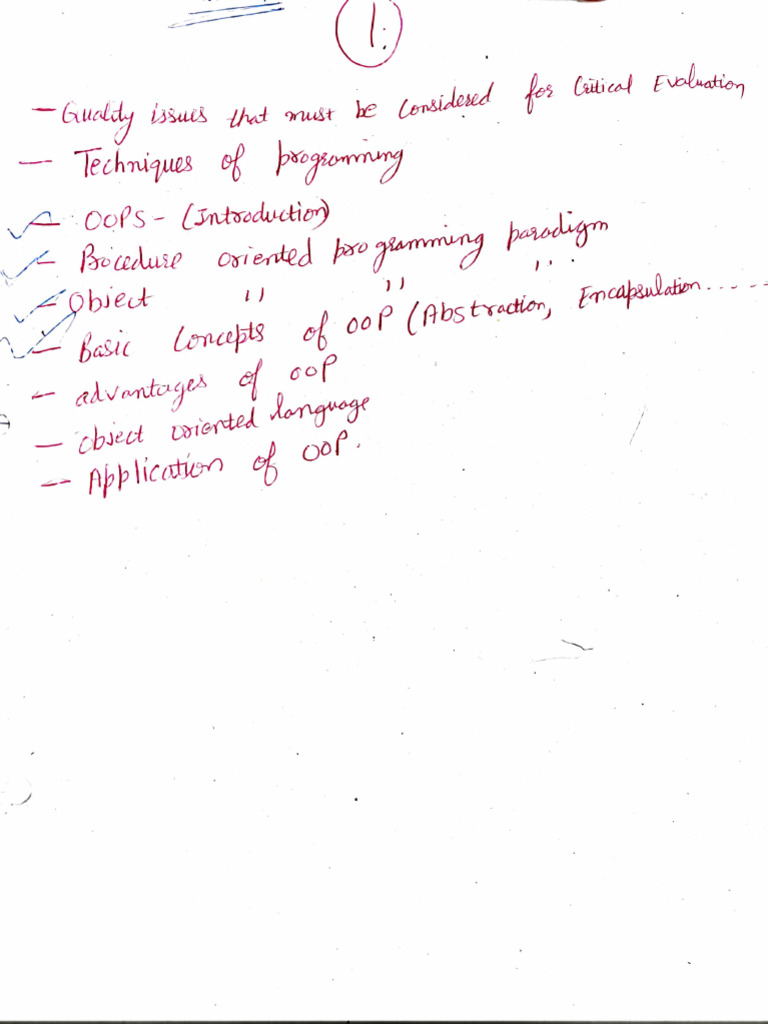 1.
- Quality issues that must be considered for Critical Evaluation
- Techniques of programming
- OOPS - (Introduction)
- Procedure oriented programming paradigm
- Object " " "
- Basic Concepts of OOP (Abstraction, Encapsulation ......
- advantages of OOP
- object oriented language
-- Application of OOP.